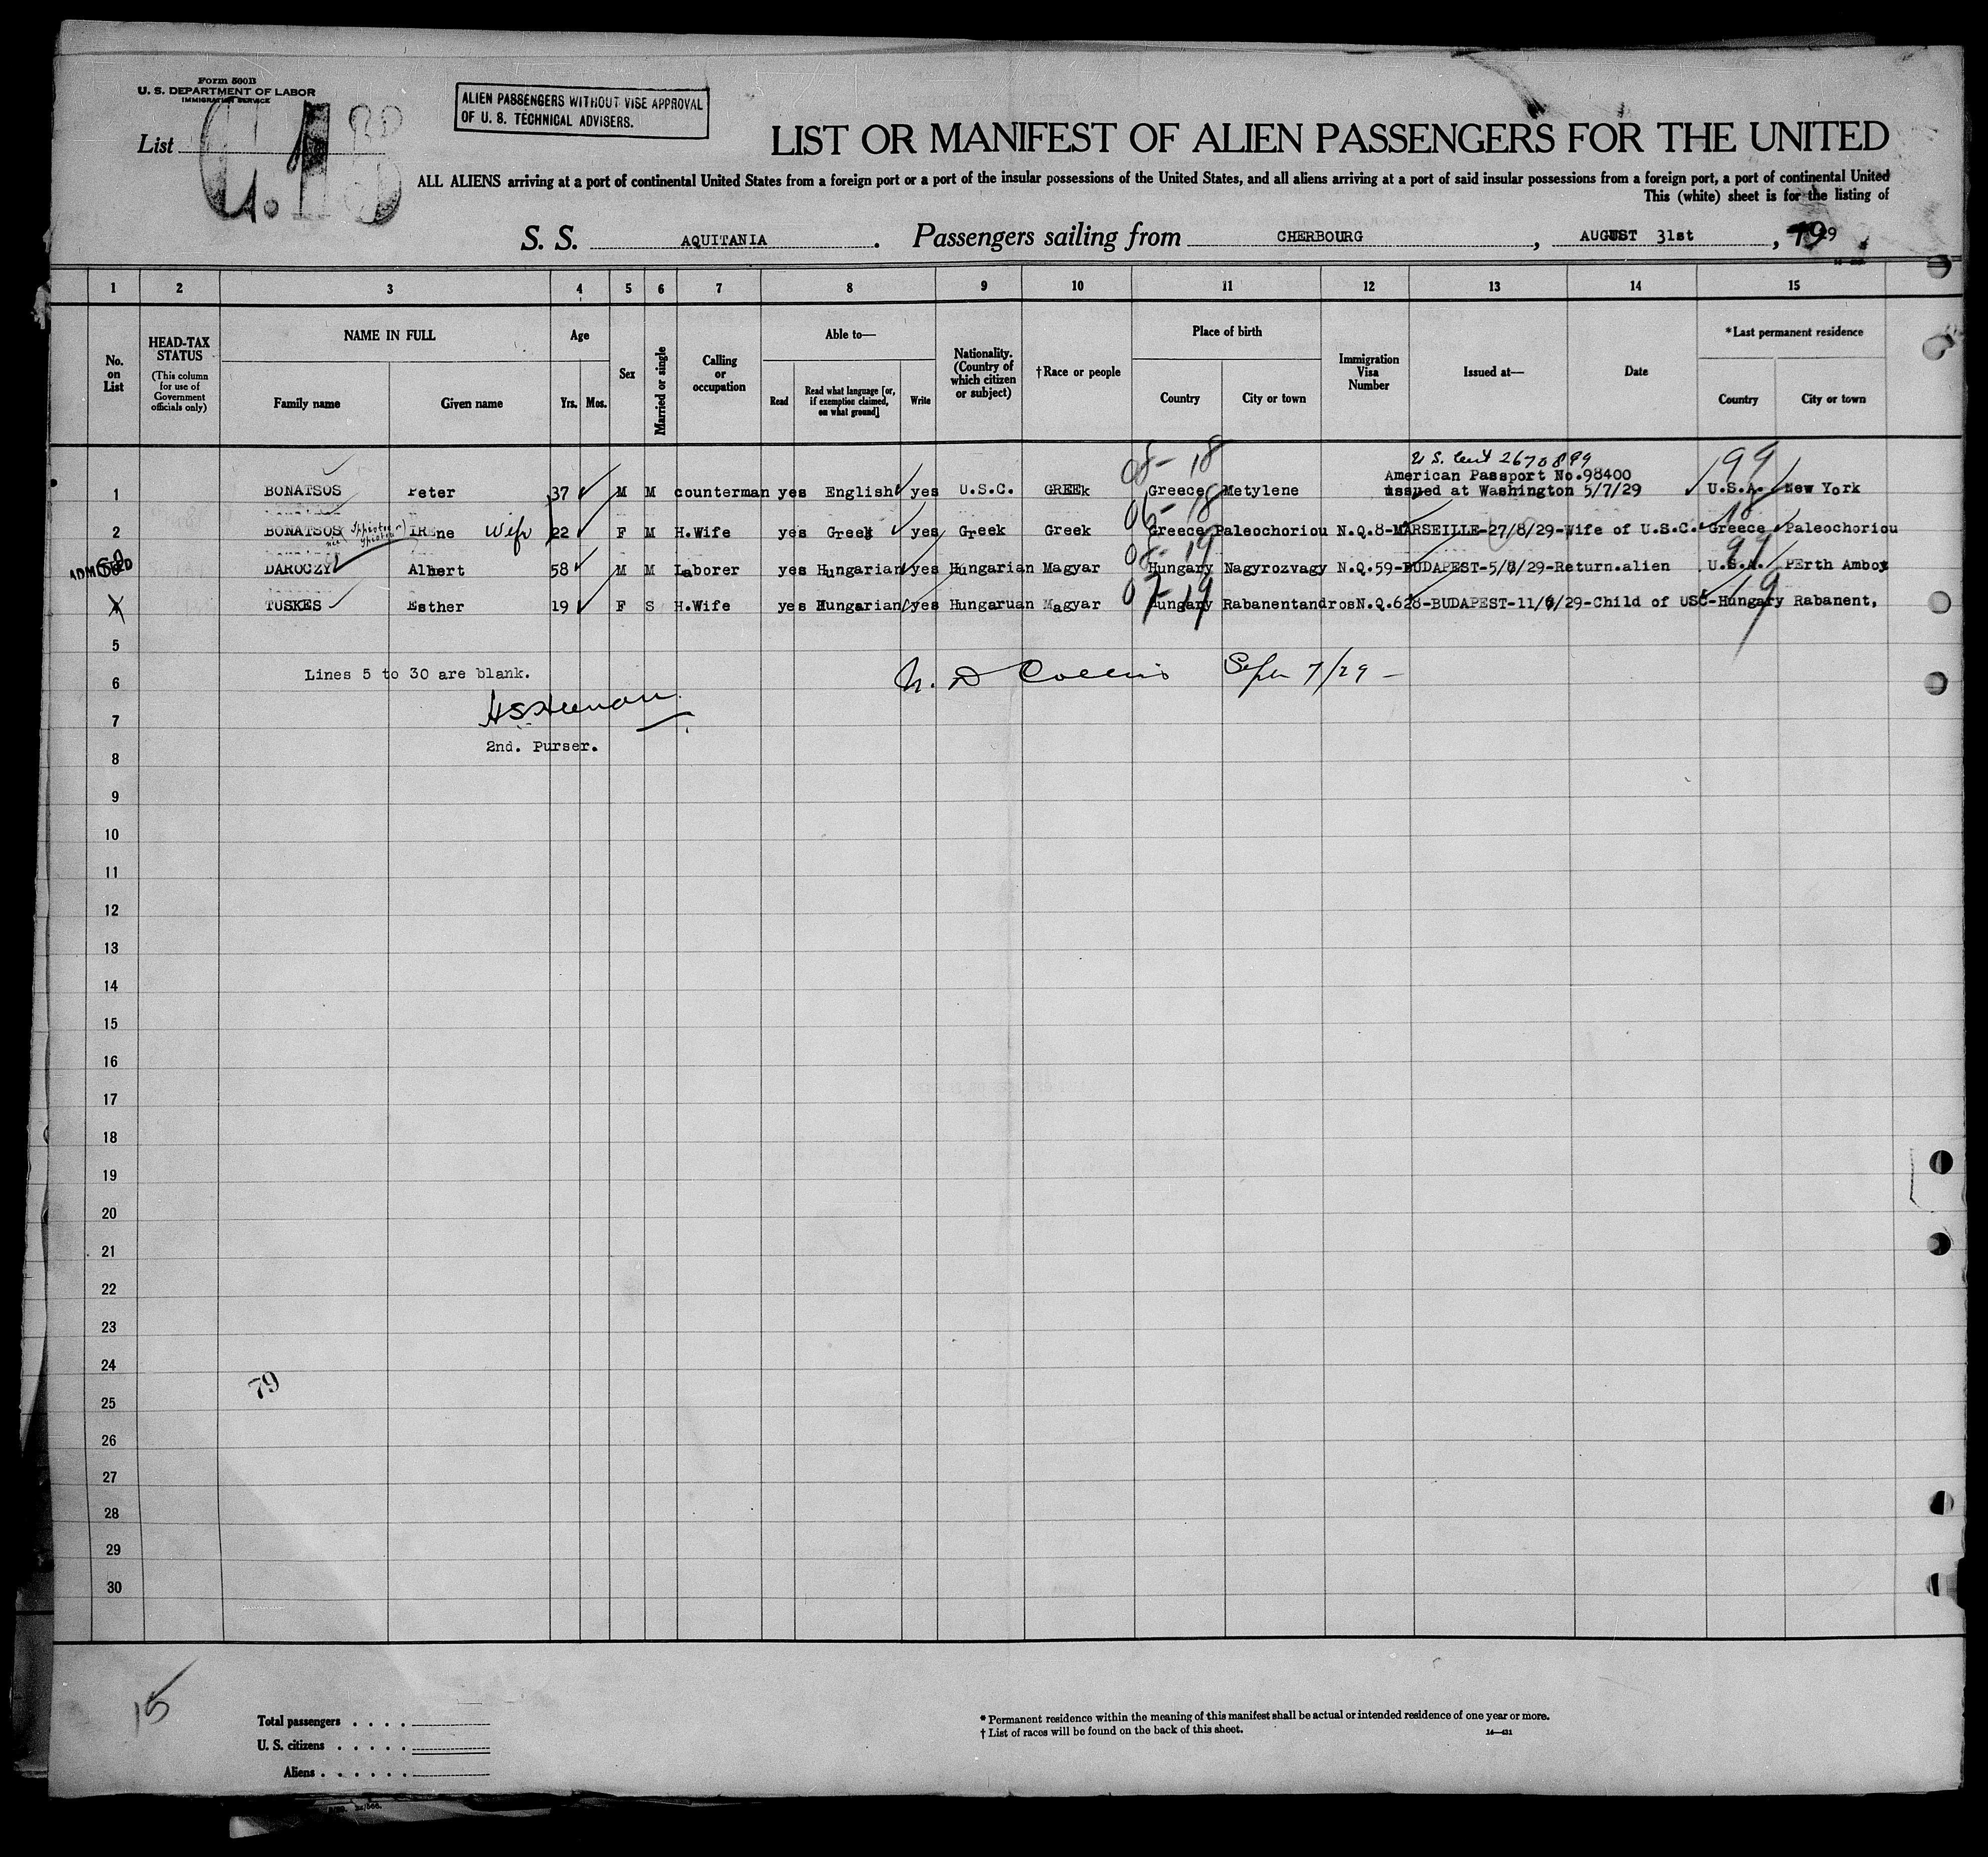 Form 500B
U. S. DEPARTMENT OF LABOR
IMMIGRATION SERVICE
List
ALIEN PASSENGERS WITHOUT VISE APPROVAL
OF U. S. TECHNICAL ADVISERS.
LIST OR MANIFEST OF ALIEN PASSENGERS FOR THE UNITED
ALL ALIENS arriving at a port of continental United States from a foreign port or a port of the insular possessions of the United States, and all aliens arriving at a port of said insular possessions from a foreign port, a port of continental United
This (white) sheet is for the listing of
S. S. AQUITANIA. Passengers sailing from CHERBOURG, AUGUST 31st, 1929
1 2 3 4 5 6 7 8 9 10 11 12 13 14 15
No. on List
HEAD-TAX STATUS
(This column for use of Government officials only)
NAME IN FULL
Family name Given name
Age
Yrs. Mos.
Sex
Married or single
Calling or occupation
Able to—
Read
Read what language [or, if exemption claimed, on what ground]
Write
Nationality. (Country of which citizen or subject)
†Race or people
Place of birth
Country City or town
Immigration Visa Number
Issued at—
Date
*Last permanent residence
Country City or town
08- 18 99
U S. Cert 2670899
American Passport No.98400
1 BONATSOS Peter 37 M M counterman yes English yes U.S.C. GREEk Greece Metylene issued at Washington 5/7/29 U.S.A. New York
06- 18 18
2 BONATSOS IREne Wife 22 F M H.Wife yes Greek yes Greek Greek Greece Paleochoriou N.Q.8-MARSEILLE-27/8/29-Wife of U.S.C. Greece Paleochoriou
08- 19 99
ADMITTED DAROCZY Albert 58 M M Laborer yes Hungarian yes Hungarian Magyar Hungary Nagyrozvagy N.Q.59-BUDAPEST-5/8/29-Return.alien U.S.A. PErth Amboy
07- 19 19
TUSKES Esther 19 F S H.Wife yes Hungarian yes Hungaruan Magyar Hungary RabanentandrosN.Q.628-BUDAPEST-11/6/29-Child of USC-Hungary Rabanent,
5
Lines 5 to 30 are blank.
Collins Sept 7/29 -
6
7
2nd. Purser.
8
9
10
11
12
13
14
15
16
17
18
19
20
21
22
23
24
79
25
26
27
28
29
30
15
Total passengers
U. S. citizens
Aliens
* Permanent residence within the meaning of this manifest shall be actual or intended residence of one year or more.
† List of races will be found on the back of this sheet.